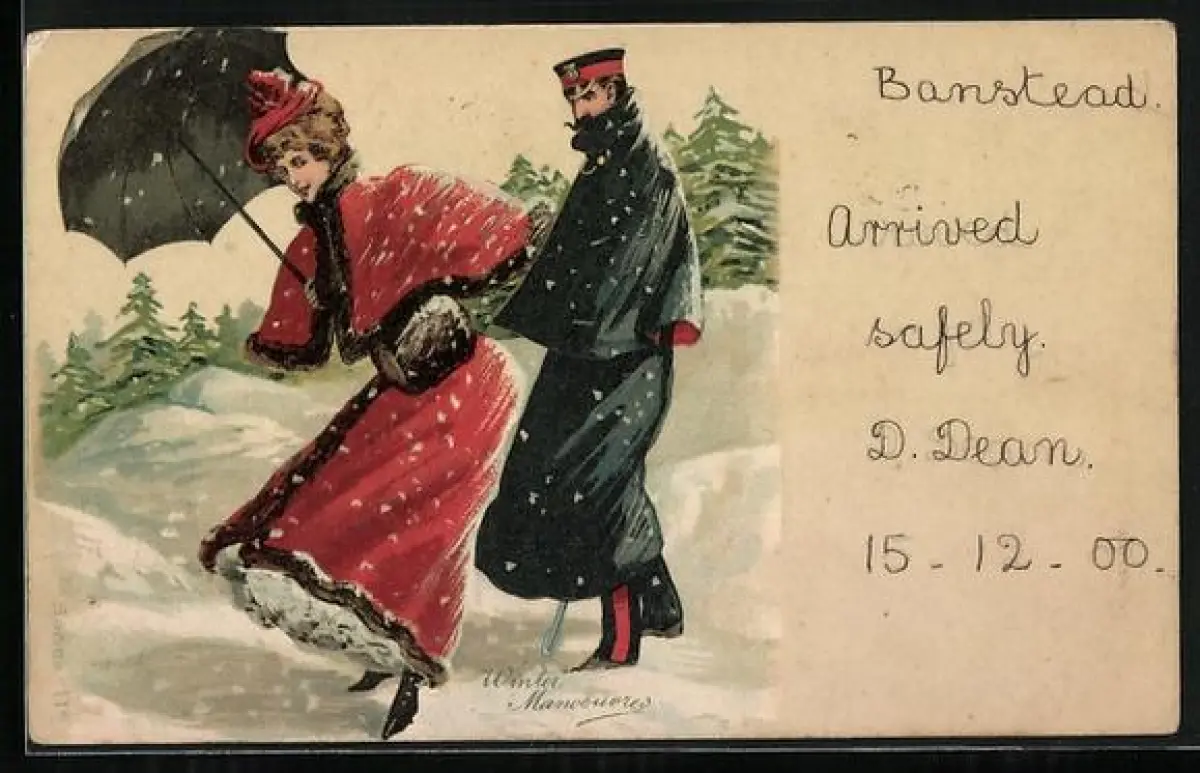 Banstead.
Arrived
safely.
D. Dean.
15 - 12 - 00.
Winter
Manoeuvres